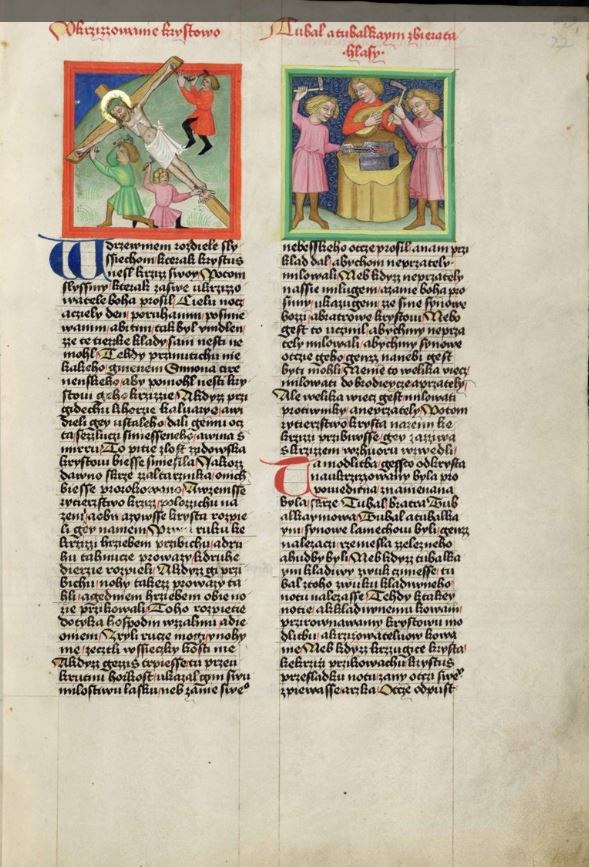 Vkrzizowanie krystowo
W drzewniem rozdiele sly
ssiechom kterak krystus
nesl krziz swoy Potom
slyssmy kterak zasve ukrzizo
watele boha prosil Cielu nocz
acziely den poruhanim posmie
wanim abitim tak byl vmdlen
ze te tiezke klady sam nesti ne
mohl Tehdy przinutichu nie
kakeho gmenem Simona cire
nenskeho aby pomohl nesti kry
stowi geho krzizie Akdyz przi
gidechu khorzie kaluarye awi
dieli gey vstaleho dali gemu oc
ta sezluczi smiesseneho awina s
mirru To pitie zlost zidowska
krystowi biesse smiesila Yakoz
dawno skrze zaltarznika onich
biesse prorokowano Awzemsse
rytierstwo krziz polozichu na
zemi aobnazywsse krysta rozpie
li gey namem
krzizi hrziebem przibichu adru
hu tahnucie prowazy kdruhe
dierzie rozpieli Akdyz gi przi
bichu nohy takez prowazy ta
hli agedniem hrziebem obie no
zie przikowali Toho rozpietie
dotyka hospodin wzaltarzi adie
omem Zryli rucze mogi ynohy
me zeczetli wssieczky kosti me
Akdyz gezis trpiesse tu przeu
krutnu horkost ukazal gim swu
milostiwu lasku neb zanie sweo
Tubal atubalkaym zbierata
hlasy
nebesskeho otcze prosil anam przi
klad dal abychom neprzately
milowali Neb kdyz neprzately
nassie milugem azanie boha pro
simy ukazugem ze sme synowe
bozi abratrowe krystowi Nebo
gest to ucinil abychmy neprza
tely milowali abychmy synowe
otcze geho genz nanebi gest
byti mohli Nenie to welika wiecz
milowati dobrodieycze aprzately
Ale welika wiecz gest milowati
protiwniky aneprzately Potom
rytierzstwo krysta nazem ke
krzizi przibiwsse gey
s krzizem wzhuoru wzwedli
Ta modlitba gessto od krysta
naukrzizowany byla pro
powiedena znamenana
byla skrze Tubal bratra Tub
alkaymowa Tubal atubalka
ym synowe lamechowi byli genz
nalezaczi rzemesla zelezneho
ahudby byli Neb kdyz tubalka
ym kladiwy zwuk czinesse tu
bal ztoho zwuku kladiwneho
notu nalezasse Tehdy ktakey
notie akkladiwnemu kowani
przirownawamy krystowu mo
dlitbu akrzizowateluow kowa
nie Neb kdyz krzizugicz krysta
kekrzizi przikowachu krystus
przesladku notu zany otczi swemu
zpiewasse arzka Otcze odpust